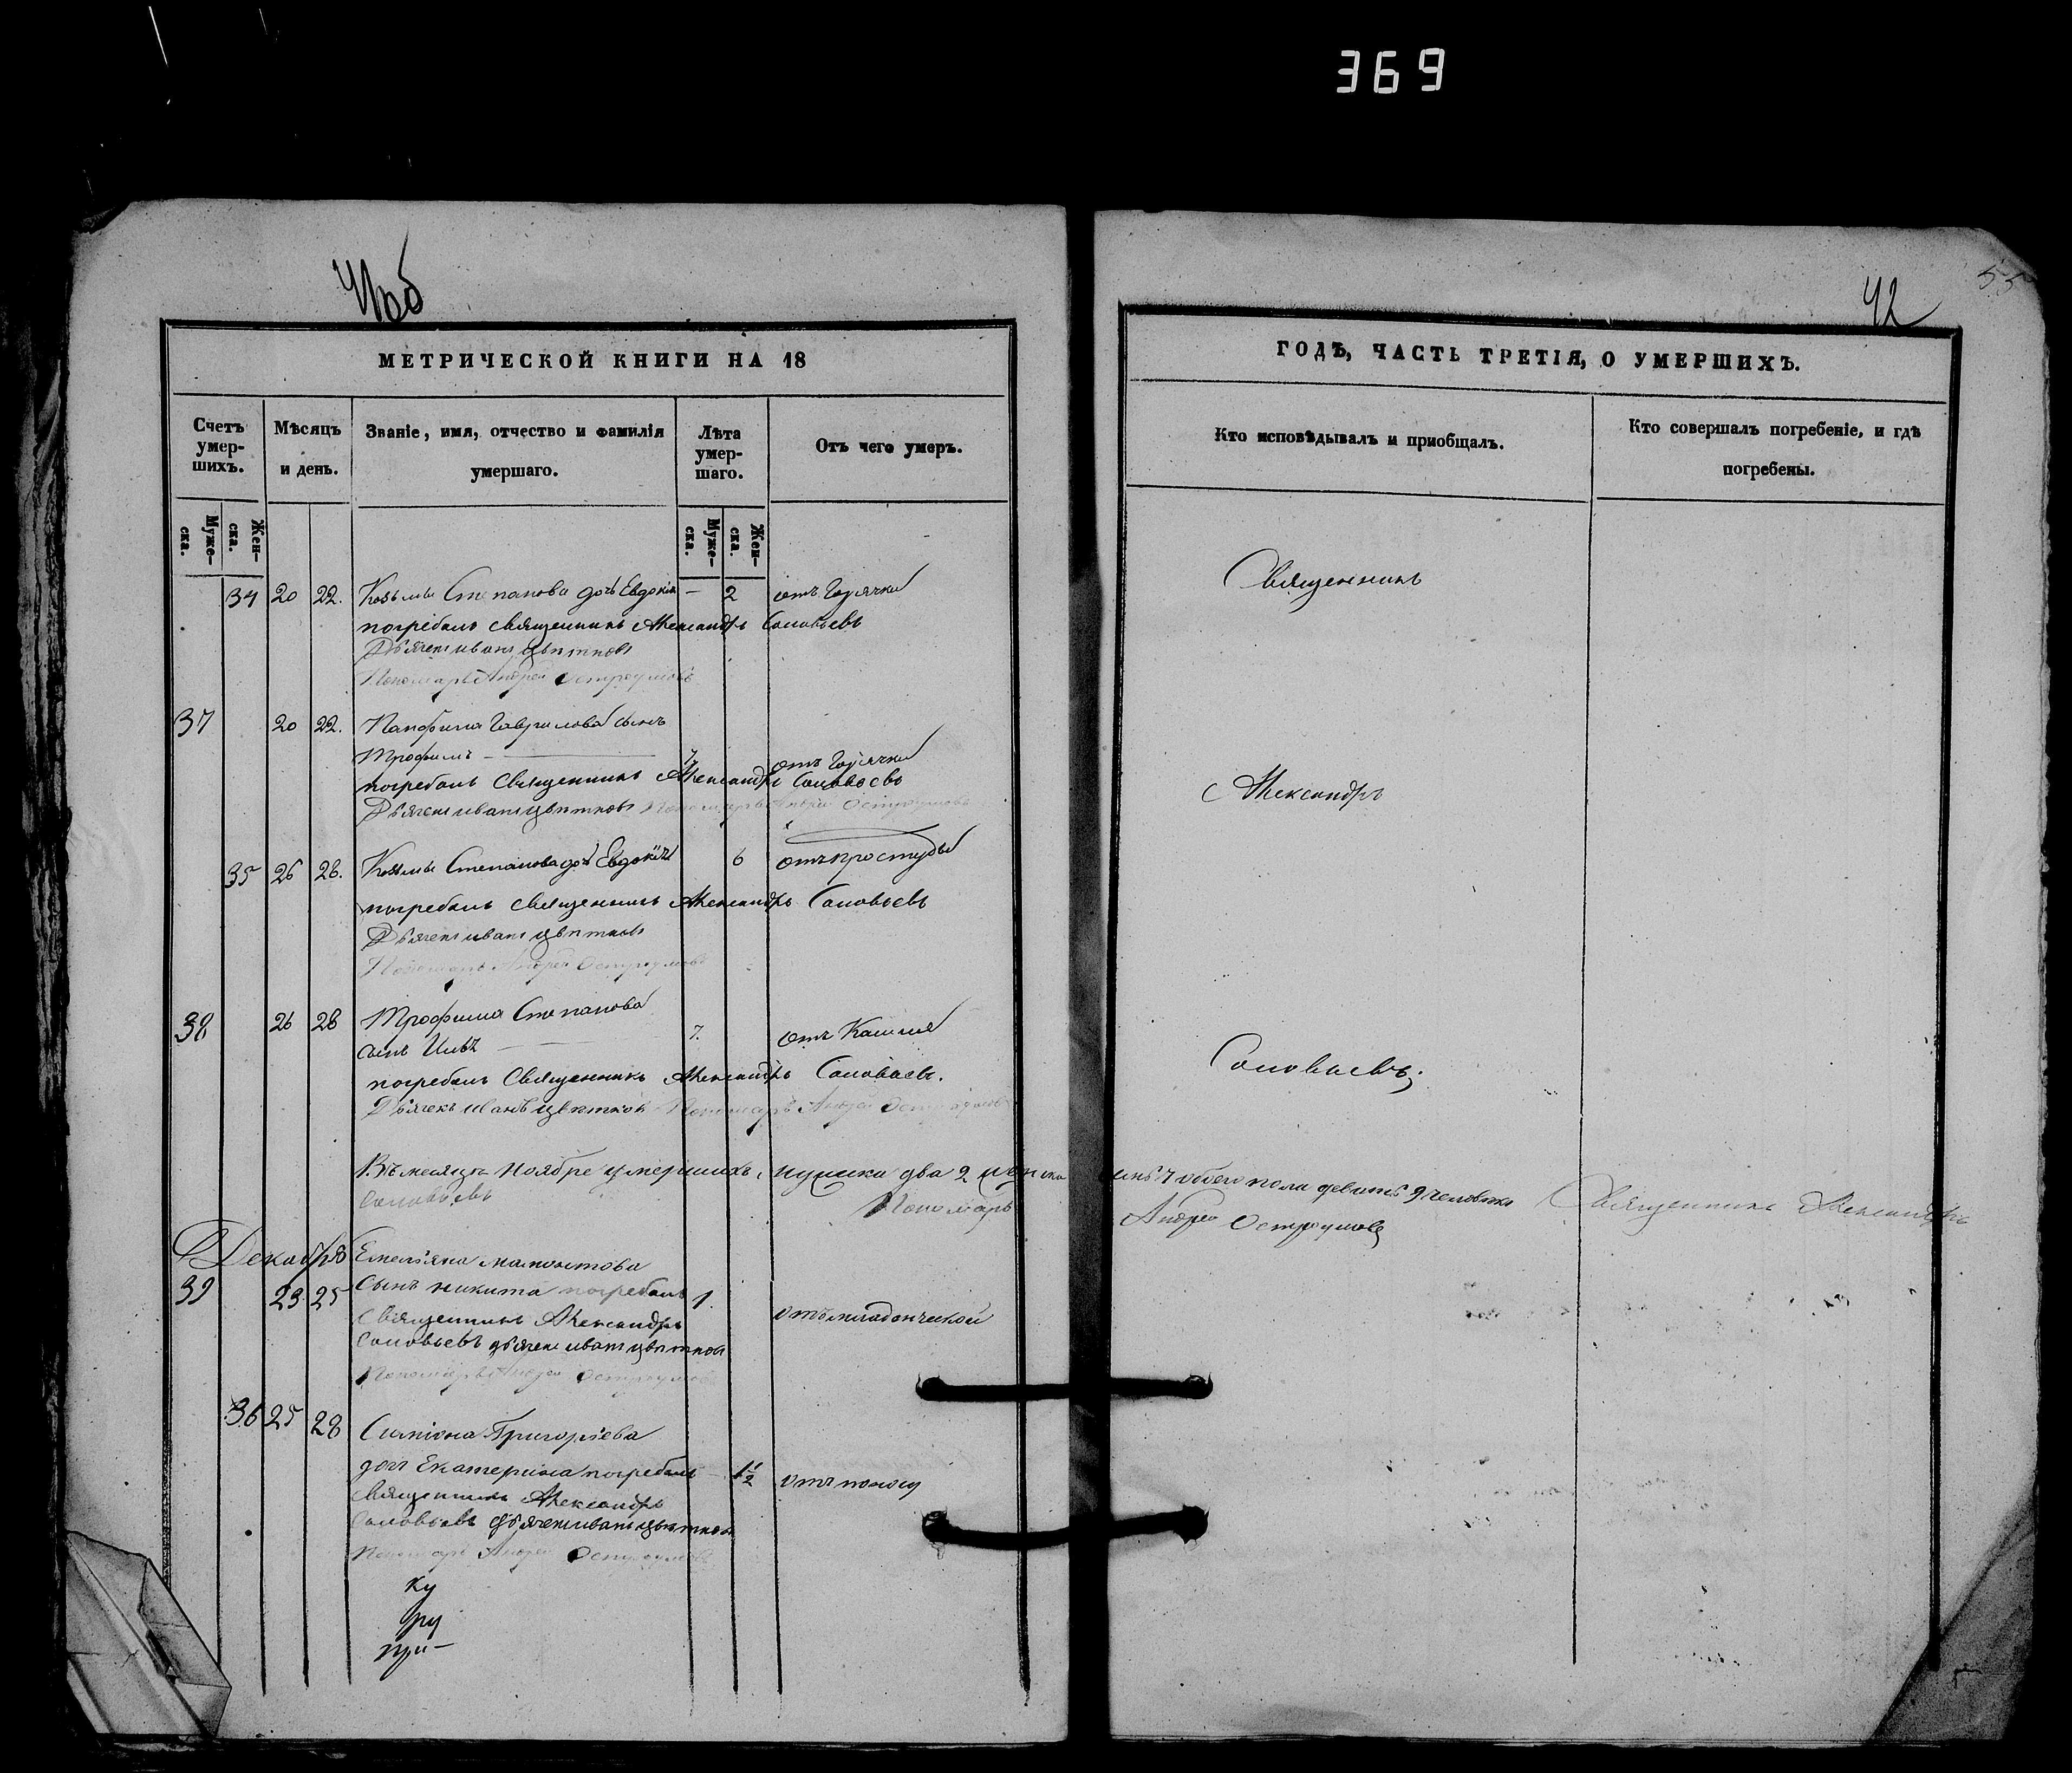 369
42
55
МЕТРИЧЕСКОЙ КНИГИ НА 18
Счетъ умер-шихъ.
Мѣсяцъ и день.
Званіе, имя, отчество и фамилія умершаго.
Лѣта умер-шаго.
Отъ чего умеръ.
Муже-ска.
Жен-ска.
Муже-ска.
Жен-ска.
34 20 22. Козьмы Степанова дочь Евдокія — 2 отъ Горячки
погребалъ священникъ Александръ Соловьевъ
Дьячекъ иванъ цвѣтковъ
Пономарь Андрей Остроумовъ
37 20 22. Панфила Гаврилова сынъ
Трофимъ — отъ Горячки
погребалъ Священникъ Александръ Соловьевъ
Дьячекъ иванъ цвѣтковъ Пономарь Андрей Остроумовъ
35 26 28. Козьмы Степанова доч Евдокія 6 отъ простуды
погребалъ священникъ Александръ Соловьевъ
Дьячекъ иванъ цвѣтковъ
Пономарь Андрей Остроумовъ
38 26 28 Трофима Степанова
сынъ 7. отъ Кашля
погребалъ Священникъ Александръ Соловьевъ.
Дьячекъ Иванъ цвѣтков Пономарь Андрей Остроумовъ
Въ месяцѣ Ноябре умершихъ, два 2 7 обоего пола девять 9 человѣкъ Священникъ Александръ
Соловьевъ Пономарь Андрей Остроумовъ
Декабря Емельяна мамонтова
39 23 25 Сынъ никита погребалъ 1.
Священникъ Александръ отъ младенческой
Соловьевъ дьячекъ иванъ цвѣтков
Пономарь Андрей Остроумов
36 25 28 Симіона Григорьева
доч Екатерина погребалъ 1 1/2 отъ поносу
священникъ Александръ
Соловьевъ дьячекъ иванъ цвѣтков
Пономарь Андрей Остроумов
ку
ру
при-
ГОДЪ, ЧАСТЬ ТРЕТІЯ, О УМЕРШИХЪ.
Кто исповѣдывалъ и приобщалъ.
Кто совершалъ погребеніе, и гдѣ погребены.
Священникъ
Александръ
Соловьевъ.